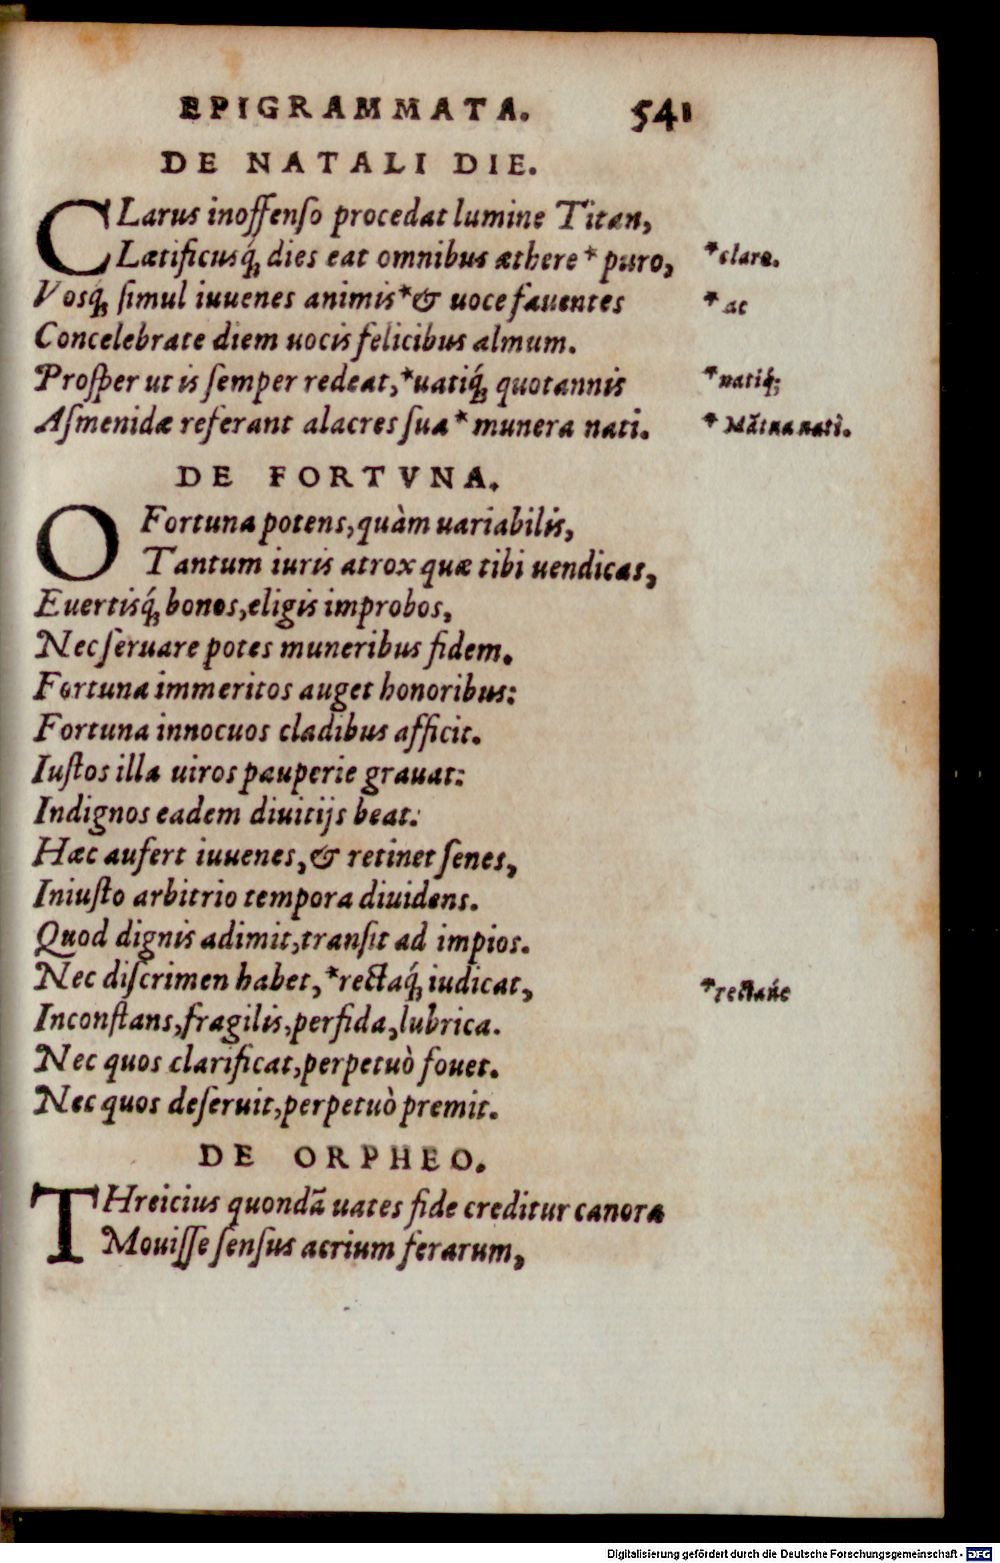 EPIGRAMMATA. 541
DE NATALI DIE.
CLarus inoffenſo procedat lumine Titan,
Lætificusq́; dies eat omnibus æthere * puro, *claro.
Vosq́; ſimul iuuenes animis * & uoce fauentes * ac
Concelebrate diem uocis felicibus almum.
Proſper ut is ſemper redeat, *uatiq́; quotannis *natiq́;
Aſmenidæ referant alacres ſua * munera nati. * Mātua nati.
DE FORTVNA.
O Fortuna potens, quàm uariabilis,
Tantum iuris atrox quæ tibi uendicas,
Euertisq́; bonos, eligis improbos,
Nec ſeruare potes muneribus fidem.
Fortuna immeritos auget honoribus:
Fortuna innocuos cladibus afficit.
Iuſtos illa uiros pauperie grauat:
Indignos eadem diuitijs beat:
Hæc aufert iuuenes, & retinet ſenes,
Iniuſto arbitrio tempora diuidens.
Quod dignis adimit, tranſit ad impios.
Nec diſcrimen habet, *rectaq́; iudicat, *rectáue
Inconſtans, fragilis, perfida, lubrica.
Nec quos clarificat, perpetuò fouet.
Nec quos deſeruit, perpetuò premit.
DE ORPHEO.
THreicius quondā uates fide creditur canora
Mouiſſe ſenſus acrium ferarum,
Digitalisierung gefördert durch die Deutsche Forschungsgemeinschaft - DFG